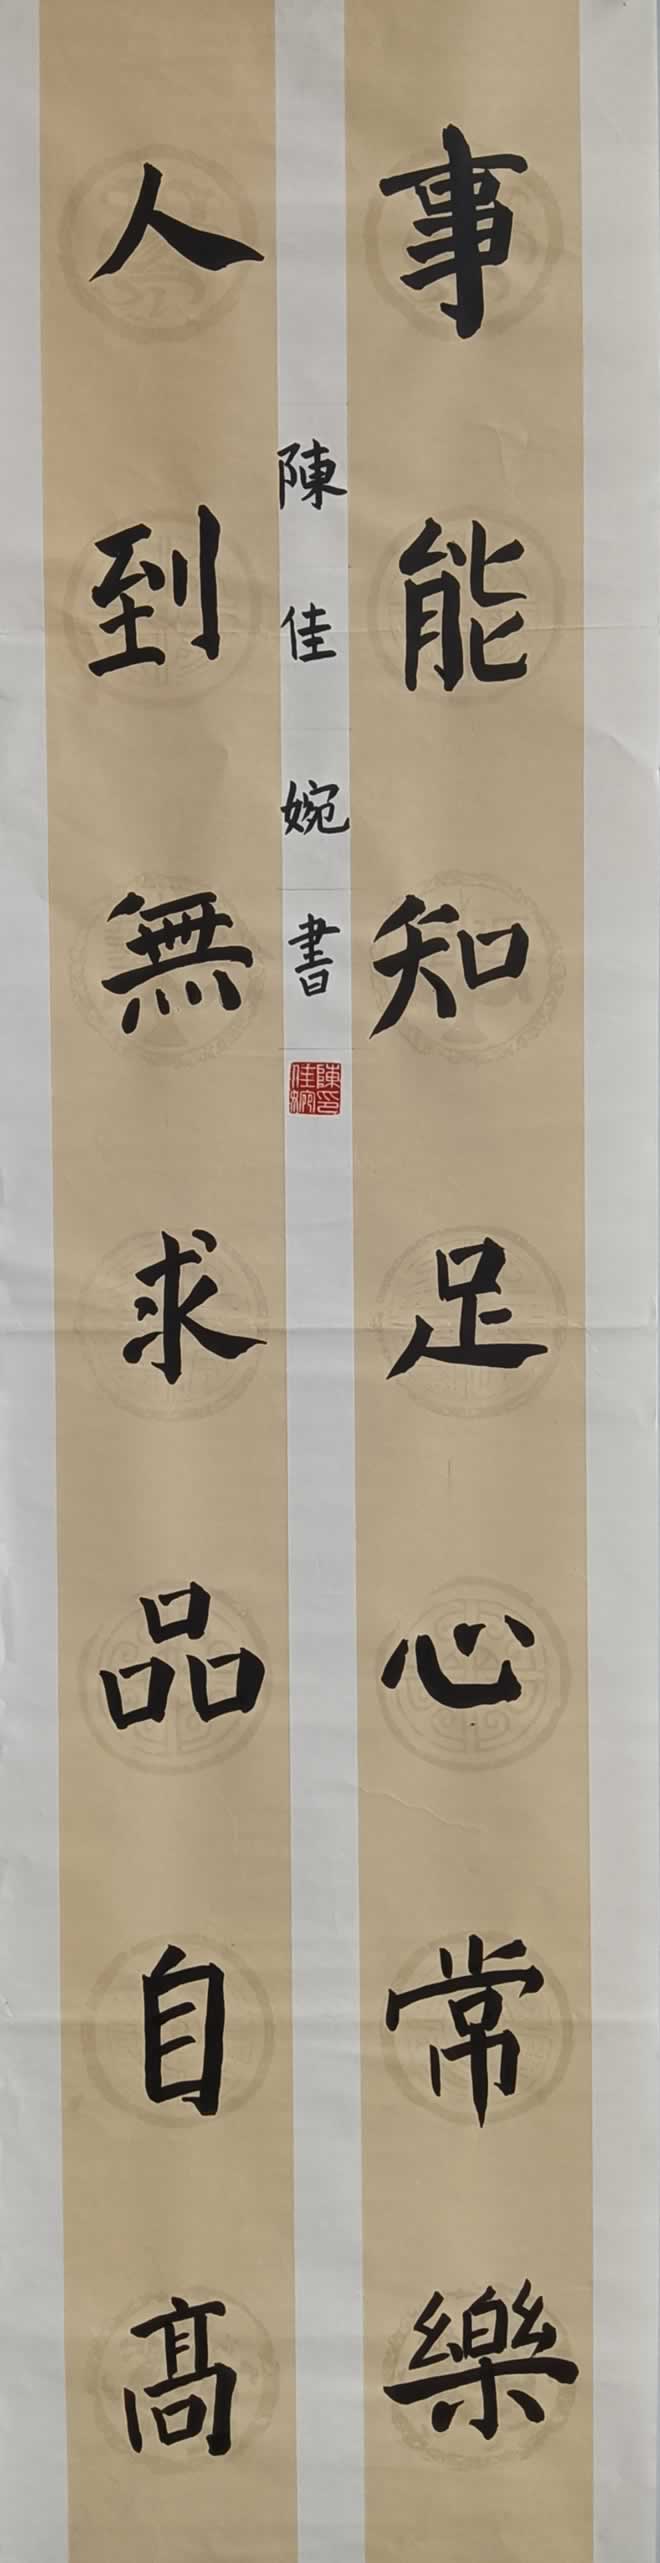 事能知足心常樂
人到無求品自高
陳佳婉書
陳佳婉印